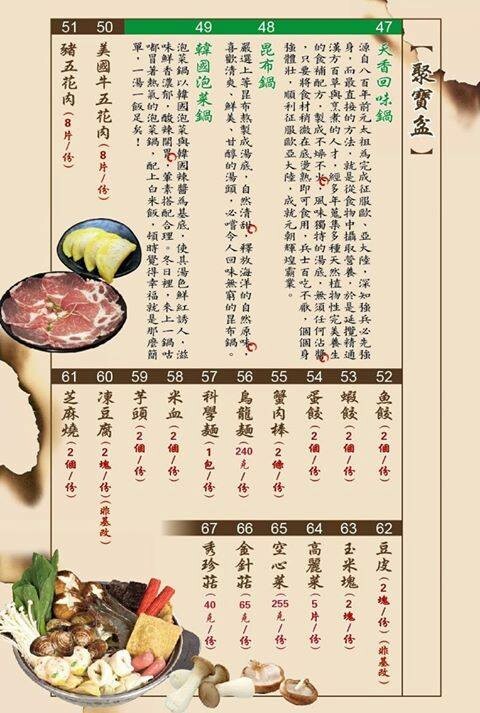 【聚寶盆】
47
天香回味鍋
源自八百年前元太祖為完成征服歐、亞大陸，深知強兵必先強
身，而最直接的方法，就是從食物中攝取營養，於是延攬精通
漢方百草與烹煮的人才，經多年蒐集多種天然植物性完美養生
的食補配方，製成不燥不火、風味獨特的湯底，無須任何沾醬
，只要將食材稍微在底燙熟即可食用，兵士百吃不厭，個個身
強體壯，順利征服歐亞大陸，成就元朝輝煌霸業。
48
昆布鍋
嚴選上等昆布熬製成湯底，自然清甜，釋放海洋的自然原味，
喜歡清爽、鮮美、甘醇的湯頭，必嚐令人回味無窮的昆布鍋。
49
韓國泡菜鍋
泡菜鍋以韓國泡菜與韓國辣醬為基底，使其湯色鮮紅誘人，滋
味鮮香濃郁，酸辣開胃，葷素搭配合理。冬日裡，來上一鍋咕
嘟冒著熱氣的泡菜鍋，配上白米飯，頓時覺得幸福就是那麼簡
單，一湯一飯足矣！
50
美國牛五花肉(8片/份)
51
豬五花肉(8片/份)
52
魚餃(2個/份)
53
蝦餃(2個/份)
54
蛋餃(2個/份)
55
蟹肉棒(2條/份)
56
烏龍麵(240克/份)
57
科學麵(1包/份)
58
米血(2個/份)
59
芋頭(2個/份)
60
凍豆腐(2塊/份)(非基改)
61
芝麻燒(2個/份)
62
豆皮(2塊/份)(非基改)
63
玉米塊(2塊/份)
64
高麗菜(5片/份)
65
空心菜(255克/份)
66
金針菇(65克/份)
67
秀珍菇(40克/份)